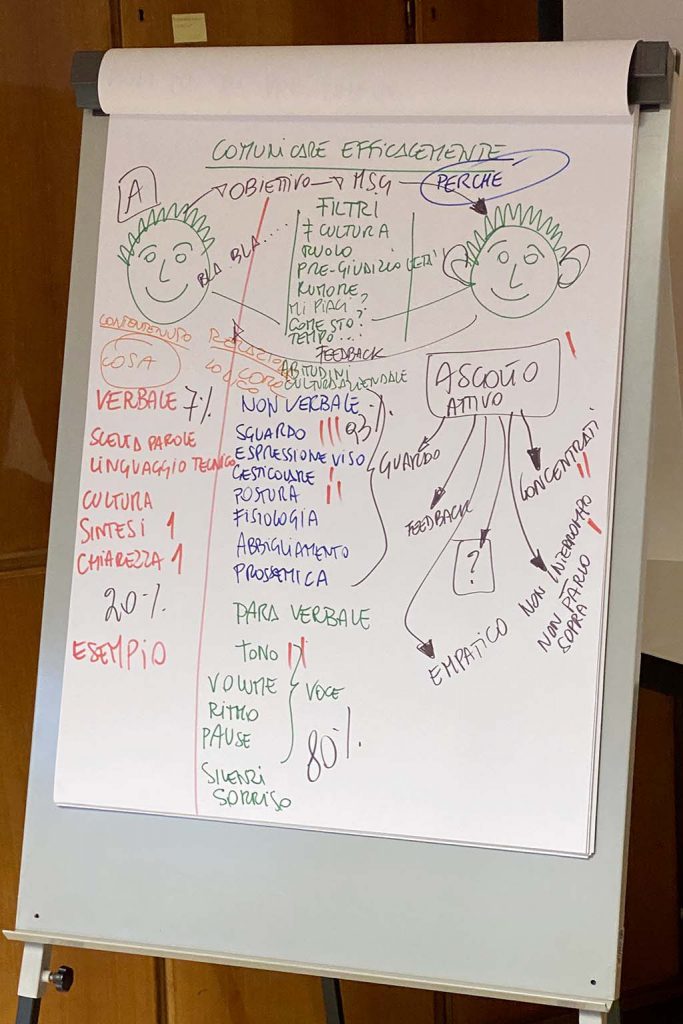 COMUNICARE EFFICACEMENTE
A
OBIETTIVO
MSG
PERCHE
BLA BLA....
FILTRI
≠ CULTURA
RUOLO
PRE-GIUDIZIO (ETÀ)
RUMORE
MI PIACI?
COME STO?
TEMPO...
FEEDBACK
ABITUDINI
CULTURA AZIENDALE
CONTENENUTO
COSA
RELAZIONE
VERBALE 7%
SCELTA PAROLE
LINGUAGGIO TECNICO
CULTURA
SINTESI 1
CHIAREZZA 1
20%
ESEMPIO
NON VERBALE
SGUARDO III
93%
ESPRESSIONE VISO
GESTICOLARE I
POSTURA II
FISIOLOGIA
ABBIGLIAMENTO
PROSSEMICA
PARA VERBALE
TONO II
VOLUME
VOCE
RITMO
PAUSE
80%
SILENZI
SORRISO
ASCOLTO
ATTIVO
I
GUARDO
FEEDBACK
?
EMPATICO
CONCENTRATI
II
NON INTERROMPO
I
NON PARLO
SOPRA